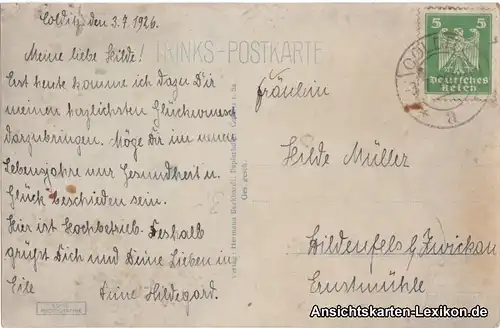 Colditz den 3.7.1926.
Meine liebe Hilde!
TRINKS-POSTKARTE
Erst heute komme ich dazu Dir
meinen herzlichsten Glückwunsch
darzubringen. Möge Dir im neuen
Lebensjahre nur Gesundheit u.
Glück beschieden sein.
Hier ist Hochbetrieb. Deshalb
grüßt Dich und Deine Lieben in
Eile
Deine Hildegard.
Ges. gesch.
5 5
Deutsches
Reich
Fräulein
Hilde Müller
Wildenfels b/Zwickau
Ernstmühle
Ansichtskarten-Lexikon.de